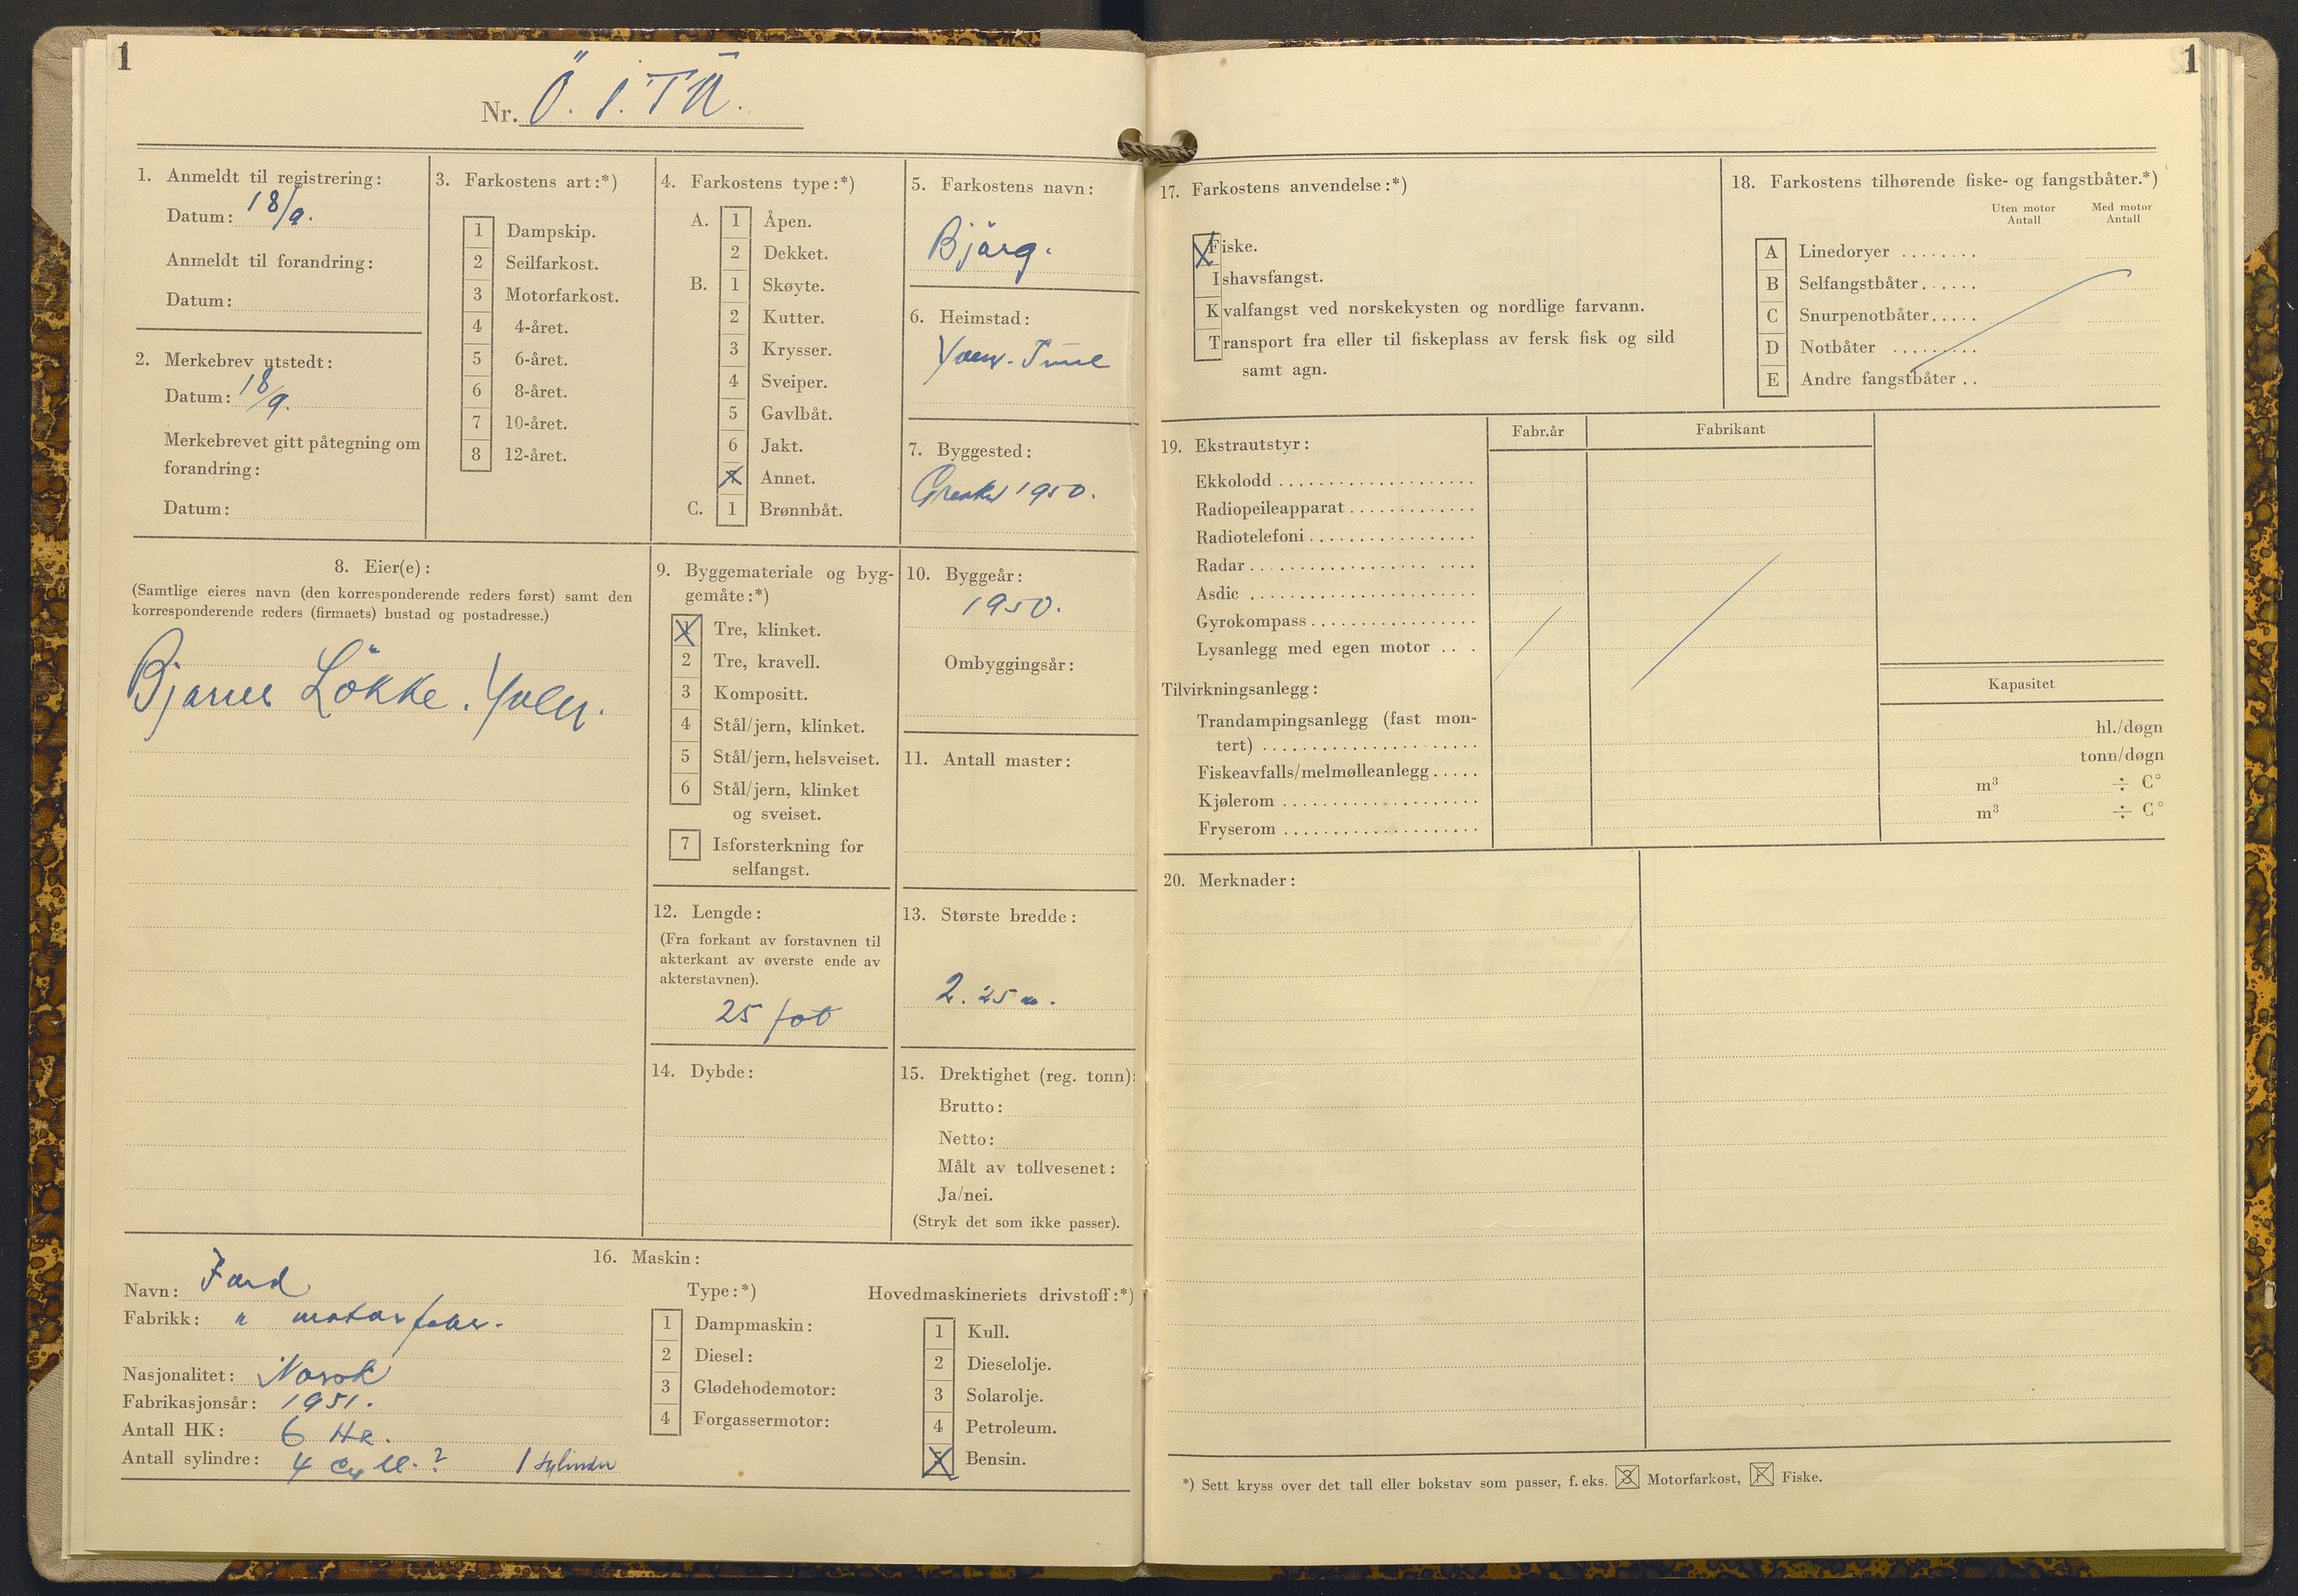 1
Nr. Ö. 1. TU.
1. Anmeldt til registrering:
Datum: 18/9.
Anmeldt til forandring:
Datum:
2. Merkebrev utstedt:
Datum: 18/9.
Merkebrevet gitt påtegning om
forandring:
Datum:
3. Farkostens art:*)
1 Dampskip.
2 Seilfarkost.
3 Motorfarkost.
4 4-året.
5 6-året.
6 8-året.
7 10-året.
8 12-året.
4. Farkostens type:*)
A. 1 Åpen.
2 Dekket.
B. 1 Skøyte.
2 Kutter.
3 Krysser.
4 Sveiper.
5 Gavlbåt.
6 Jakt.
7 Annet.
C. 1 Brønnbåt.
5. Farkostens navn:
Björg.
6. Heimstad:
Yven. Tune
7. Byggested:
Greaker 1950.
8. Eier(e):
(Samtlige eieres navn (den korresponderende reders først) samt den
korresponderende reders (firmaets) bustad og postadresse.)
Bjarne Lökke. Yven.
9. Byggemateriale og byg-
gemåte:*)
1 Tre, klinket.
2 Tre, kravell.
3 Kompositt.
4 Stål/jern, klinket.
5 Stål/jern, helsveiset.
6 Stål/jern, klinket
og sveiset.
7 Isforsterkning for
selfangst.
10. Byggeår:
1950.
Ombyggingsår:
11. Antall master:
12. Lengde:
(Fra forkant av forstavnen til
akterkant av øverste ende av
akterstavnen).
25 fot
13. Største bredde:
2.25 m.
14. Dybde:
15. Drektighet (reg. tonn):
Brutto:
Netto:
Målt av tollvesenet:
Ja/nei.
(Stryk det som ikke passer).
16. Maskin:
Navn: Ford
Fabrikk: " motorfabr.
Nasjonalitet: Norsk
Fabrikasjonsår: 1951.
Antall HK: 6 Hk.
Antall sylindre: 4 Cyll.? 1 sylinder
Type:*)
1 Dampmaskin:
2 Diesel:
3 Glødehodemotor:
4 Forgassermotor:
Hovedmaskineriets drivstoff:*)
1 Kull.
2 Dieselolje.
3 Solarolje.
4 Petroleum.
5 Bensin.
1
17. Farkostens anvendelse:*)
Fiske.
Ishavsfangst.
Kvalfangst ved norskekysten og nordlige farvann.
Transport fra eller til fiskeplass av fersk fisk og sild
samt agn.
18. Farkostens tilhørende fiske- og fangstbåter.*)
Uten motor Antall
Med motor Antall
A Linedoryer ........
B Selfangstbåter......
C Snurpenotbåter.....
D Notbåter .........
E Andre fangstbåter ..
19. Ekstrautstyr:
Fabr.år
Fabrikant
Ekkolodd
Radiopeileapparat
Radiotelefoni
Radar
Asdic
Gyrokompass
Lysanlegg med egen motor
Tilvirkningsanlegg:
Kapasitet
Trandampingsanlegg (fast mon-
tert) hl./døgn
Fiskeavfalls/melmølleanlegg..... tonn/døgn
Kjølerom m³ ÷ C°
Fryserom m³ ÷ C°
20. Merknader:
*) Sett kryss over det tall eller bokstav som passer, f. eks. 3 Motorfarkost, F Fiske.